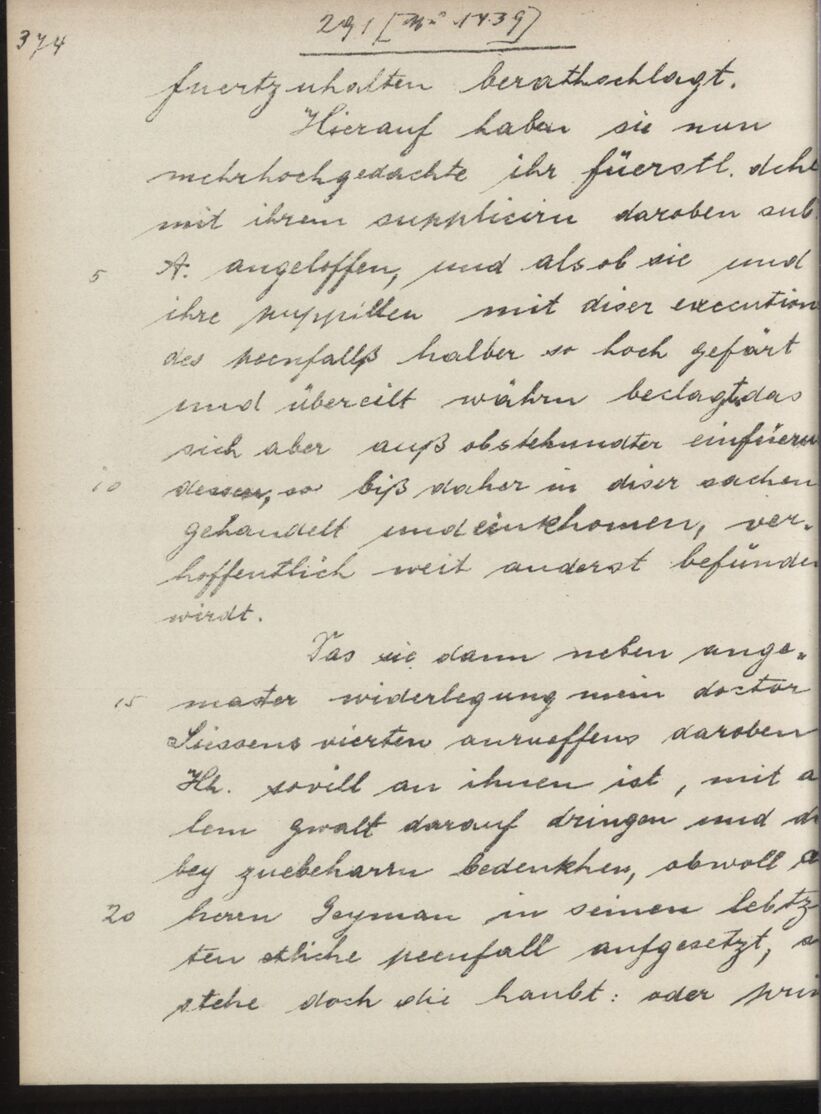 374
291 [Nr 1439]
fuertzuhalten berathschlagt.
Hierauf haben sie nun
mehrhochgedachte ihr füerstl. dchl
mit ihrem suppliciern daroben sub
5 A. angeloffen, und als ob sie und
ihre puppillen mit diser execution
des poenfallß halber so hoch gefärt
und übereilt währn beclagt, das
sich aber auß obstehundter einfüeru
10 dessen, so biß daher in diser sachen
gehandelt und einkhomen, ver-
hoffentlich weit anderst befünde
wirdt.
Das sie dann neben ange-
15 master widerlegung mein doctor
Süssens vierten anrueffens daroben
Hh. sovill an ihnen ist, mit a
lem gwalt darauf dringen und d
bey zuebeharrn bedenkhen, obwoll
20 herrn Geyman in seinen lebtz
ten etliche peenfall aufgesetzt,
stehe doch die haubt: oder prin